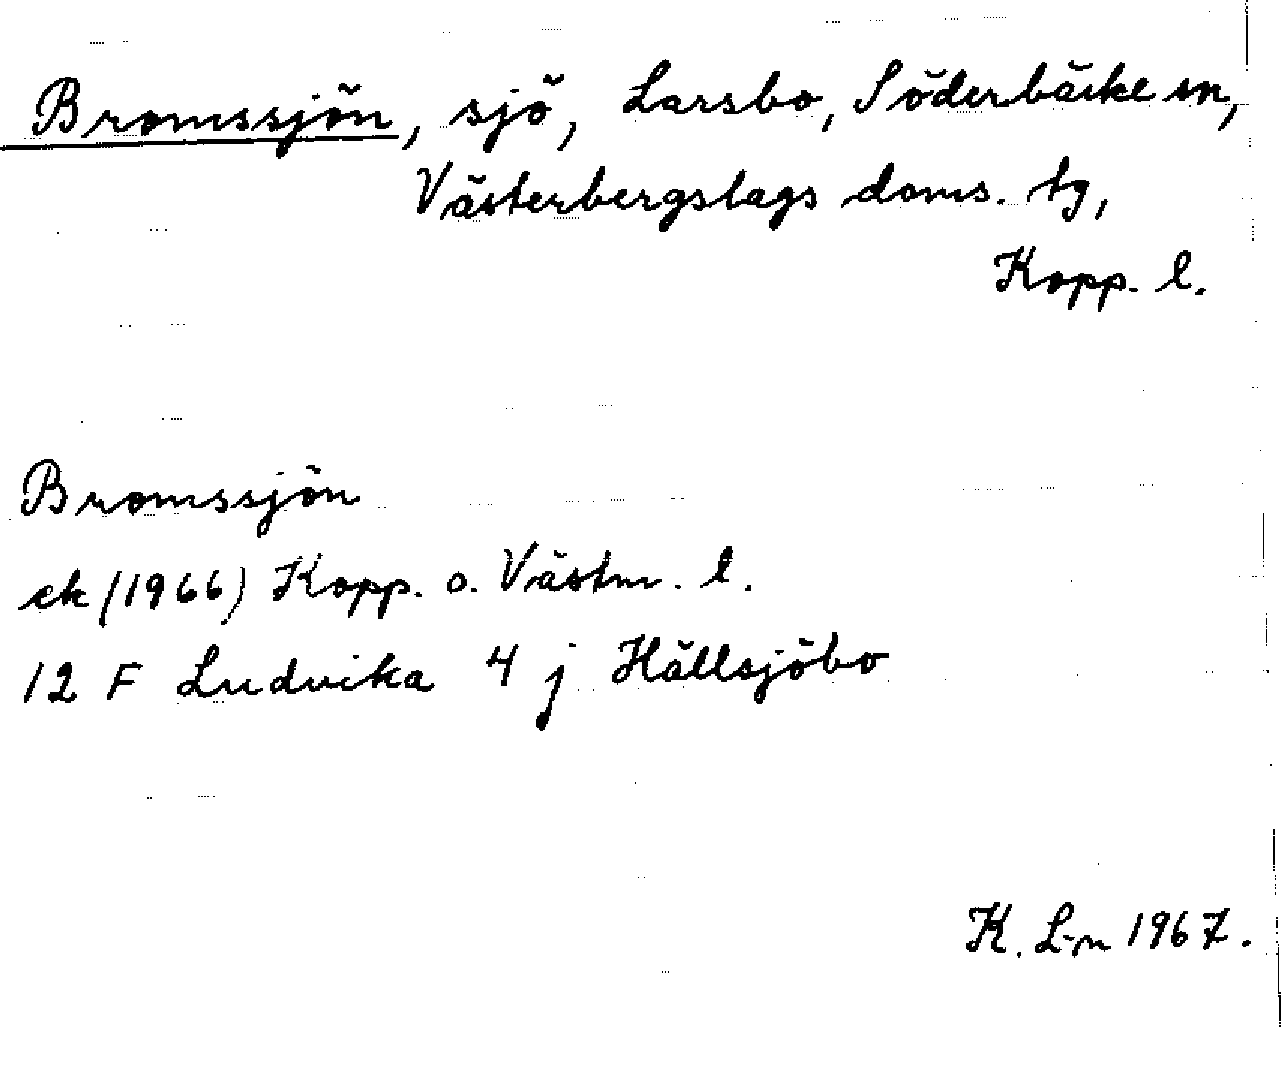 Bromssjön, sjö, Larsbo, Söderbärke sn,
Västerbergslags doms. tg,
Kopp. l.
Bromssjön
ek (1966) Kopp. o. Västm. l.
12 F Ludvika 4 j Hällsjöbo
K. L-n 1967.